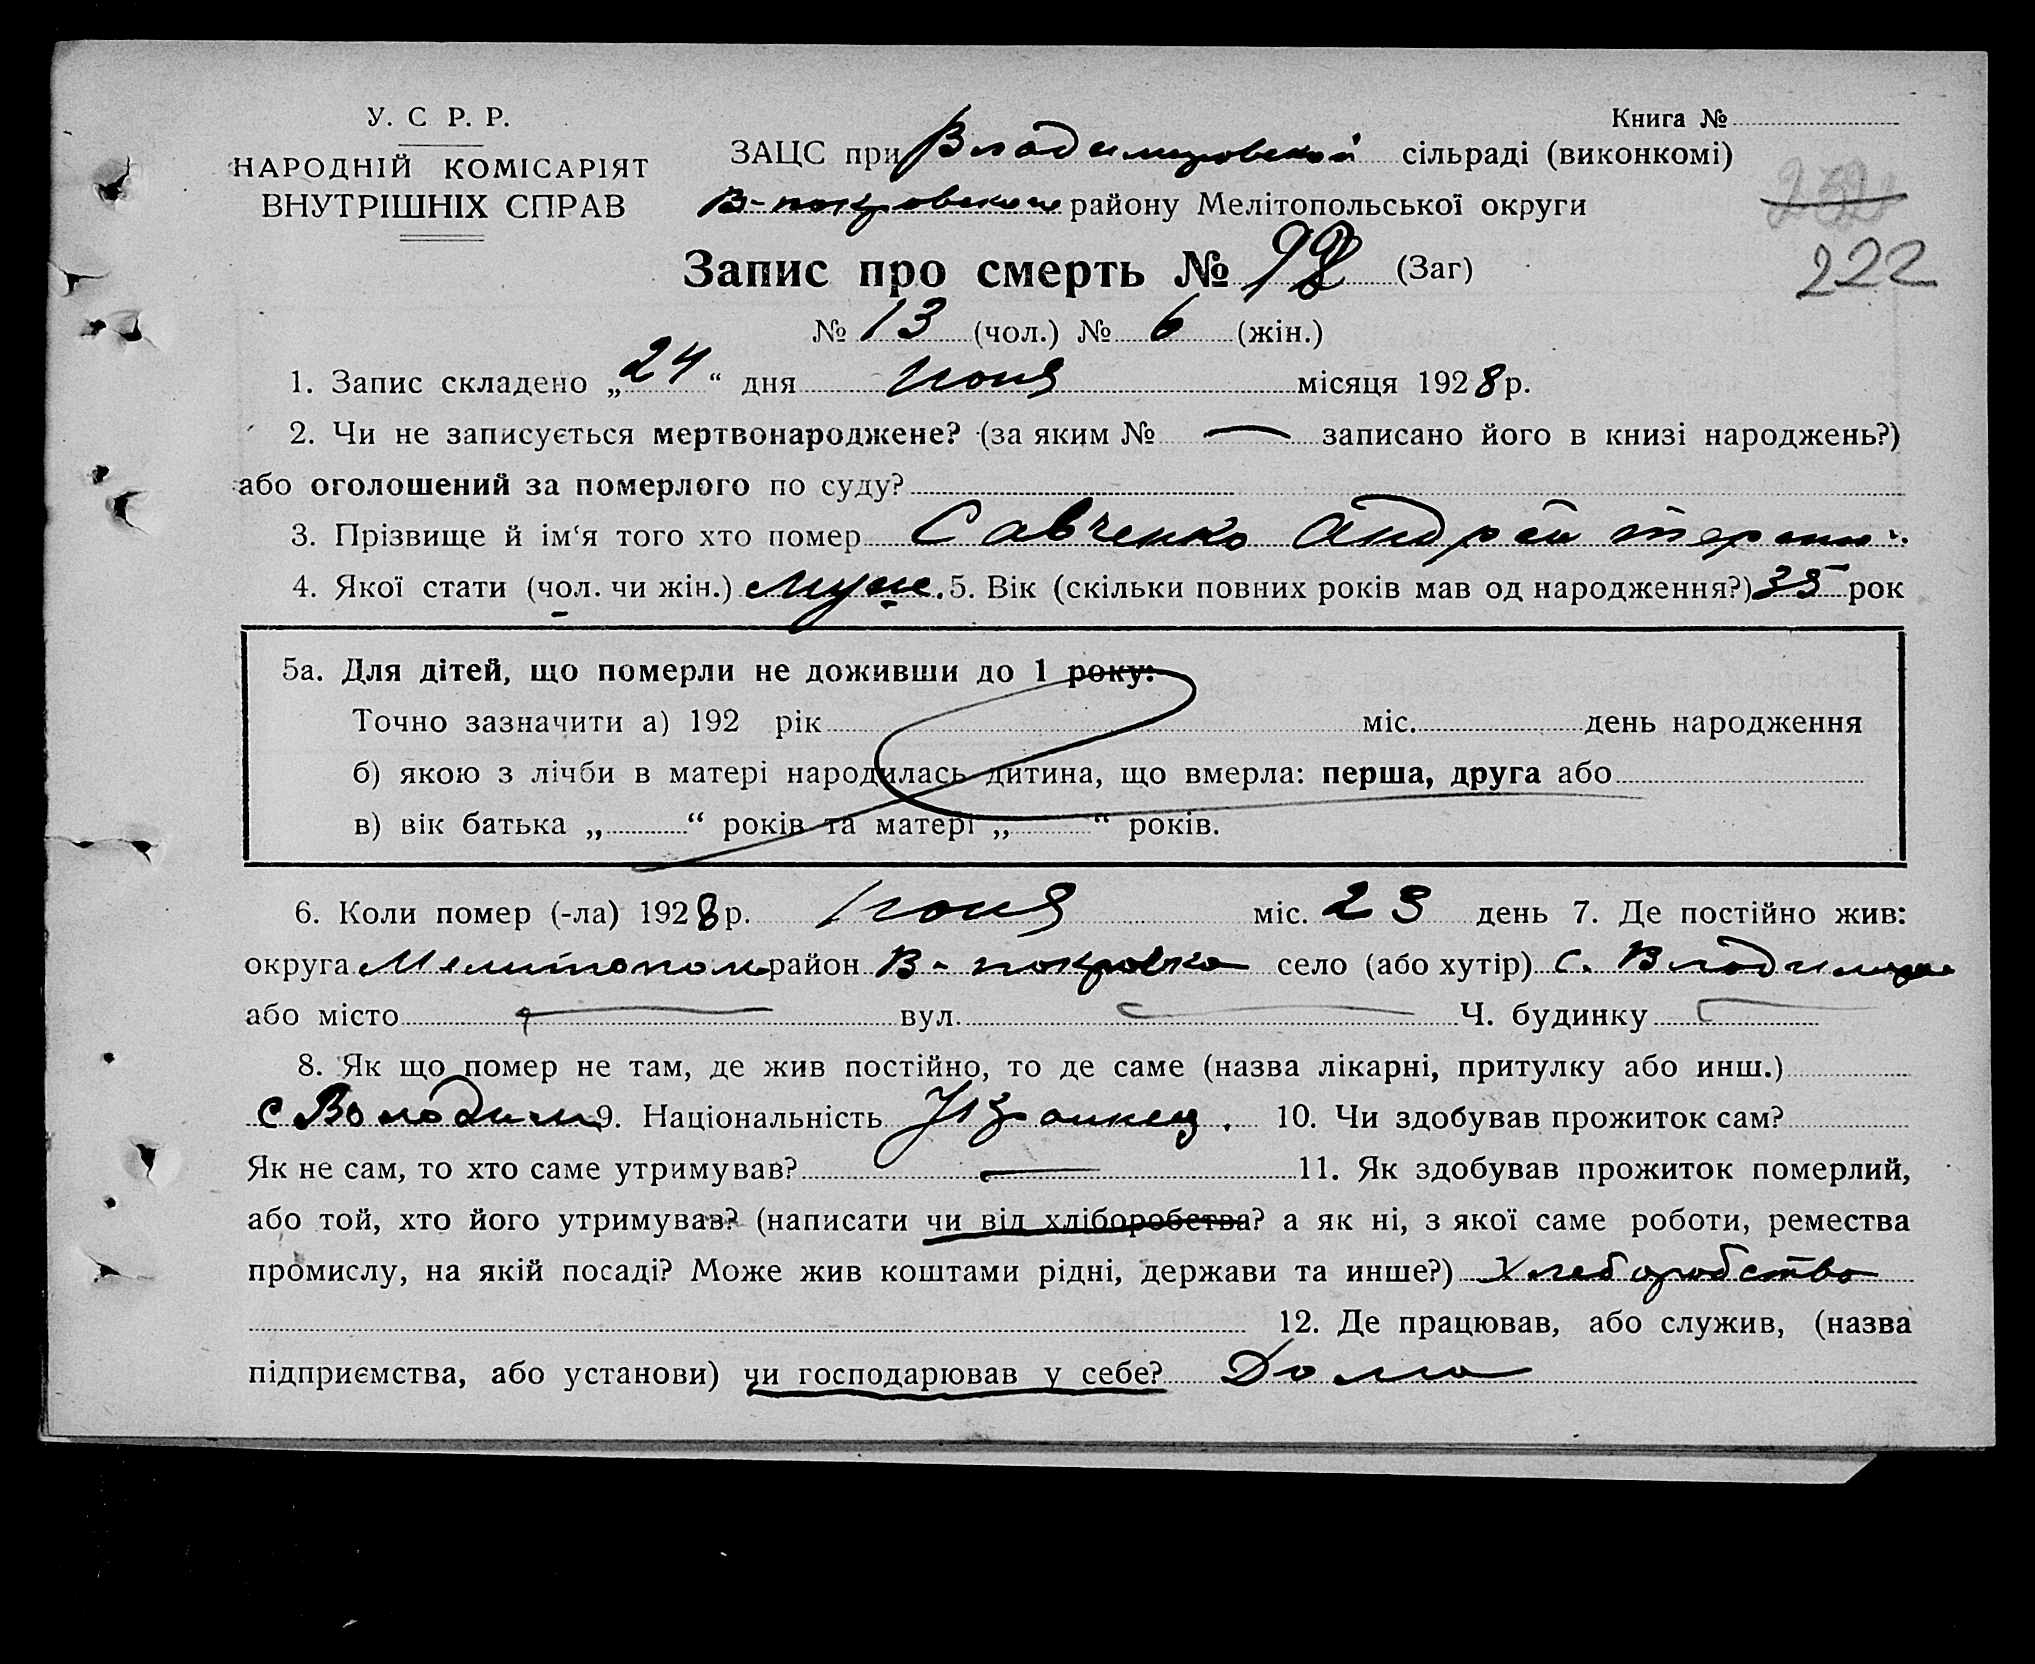 У. С Р. Р.
НАРОДНІЙ КОМІСАРІЯТ
ВНУТРІШНІХ СПРАВ
Книга №
ЗАЦС при Владимировской сільраді (виконкомі)
В-покровского району Мелітопольської округи
222
Запис про смерть № (Заг)
№ 13 (чол.) № 6 (жін.)
1. Запис складено „24“ дня Июня місяця 1928 р.
2. Чи не записується мертвонароджене? (за яким № — записано його в книзі народжень?)
або оголошений за померлого по суду?
3. Прізвище й ім‘я того хто помер Савченко Андрей
4. Якої стати (чол. чи жін.) Муж. 5. Вік (скільки повних років мав од народження?) 35 рок
5а. Для дітей, що померли не доживши до 1 року:
Точно зазначити а) 192 рік міс. день народження
б) якою з лічби в матері народилась дитина, що вмерла: перша, друга або
в) вік батька „ “ років та матері „ “ років.
6. Коли помер (-ла) 1928 р. Июня міс. 23 день 7. Де постійно жив:
округа Мелитопол район В-покровка село (або хутір) с. Владимир
або місто — вул. — Ч. будинку —
8. Як що помер не там, де жив постійно, то де саме (назва лікарні, притулку або инш.)
с Володим 9. Національність Украинец. 10. Чи здобував прожиток сам?
Як не сам, то хто саме утримував? — 11. Як здобував прожиток померлий,
або той, хто його утримував? (написати чи від хліборобства? а як ні, з якої саме роботи, ремества
промислу, на якій посаді? Може жив коштами рідні, держави та инше?) Хлеборобство
12. Де працював, або служив, (назва
підприємства, або установи) чи господарював у себе? Дома